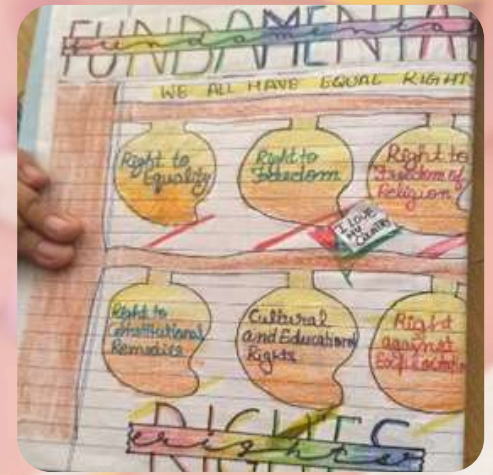 FUNDAMENTAL
fundamental
WE ALL HAVE EQUAL RIGHTS
Right to
Equality
Right to
Freedom
Right to
Freedom of
Religion
I LOVE
MY
COUNTRY
Right to
Constitutional
Remedies
Cultural
and Educational
Rights
Right
against
Exploitation
RIGHTS
rights